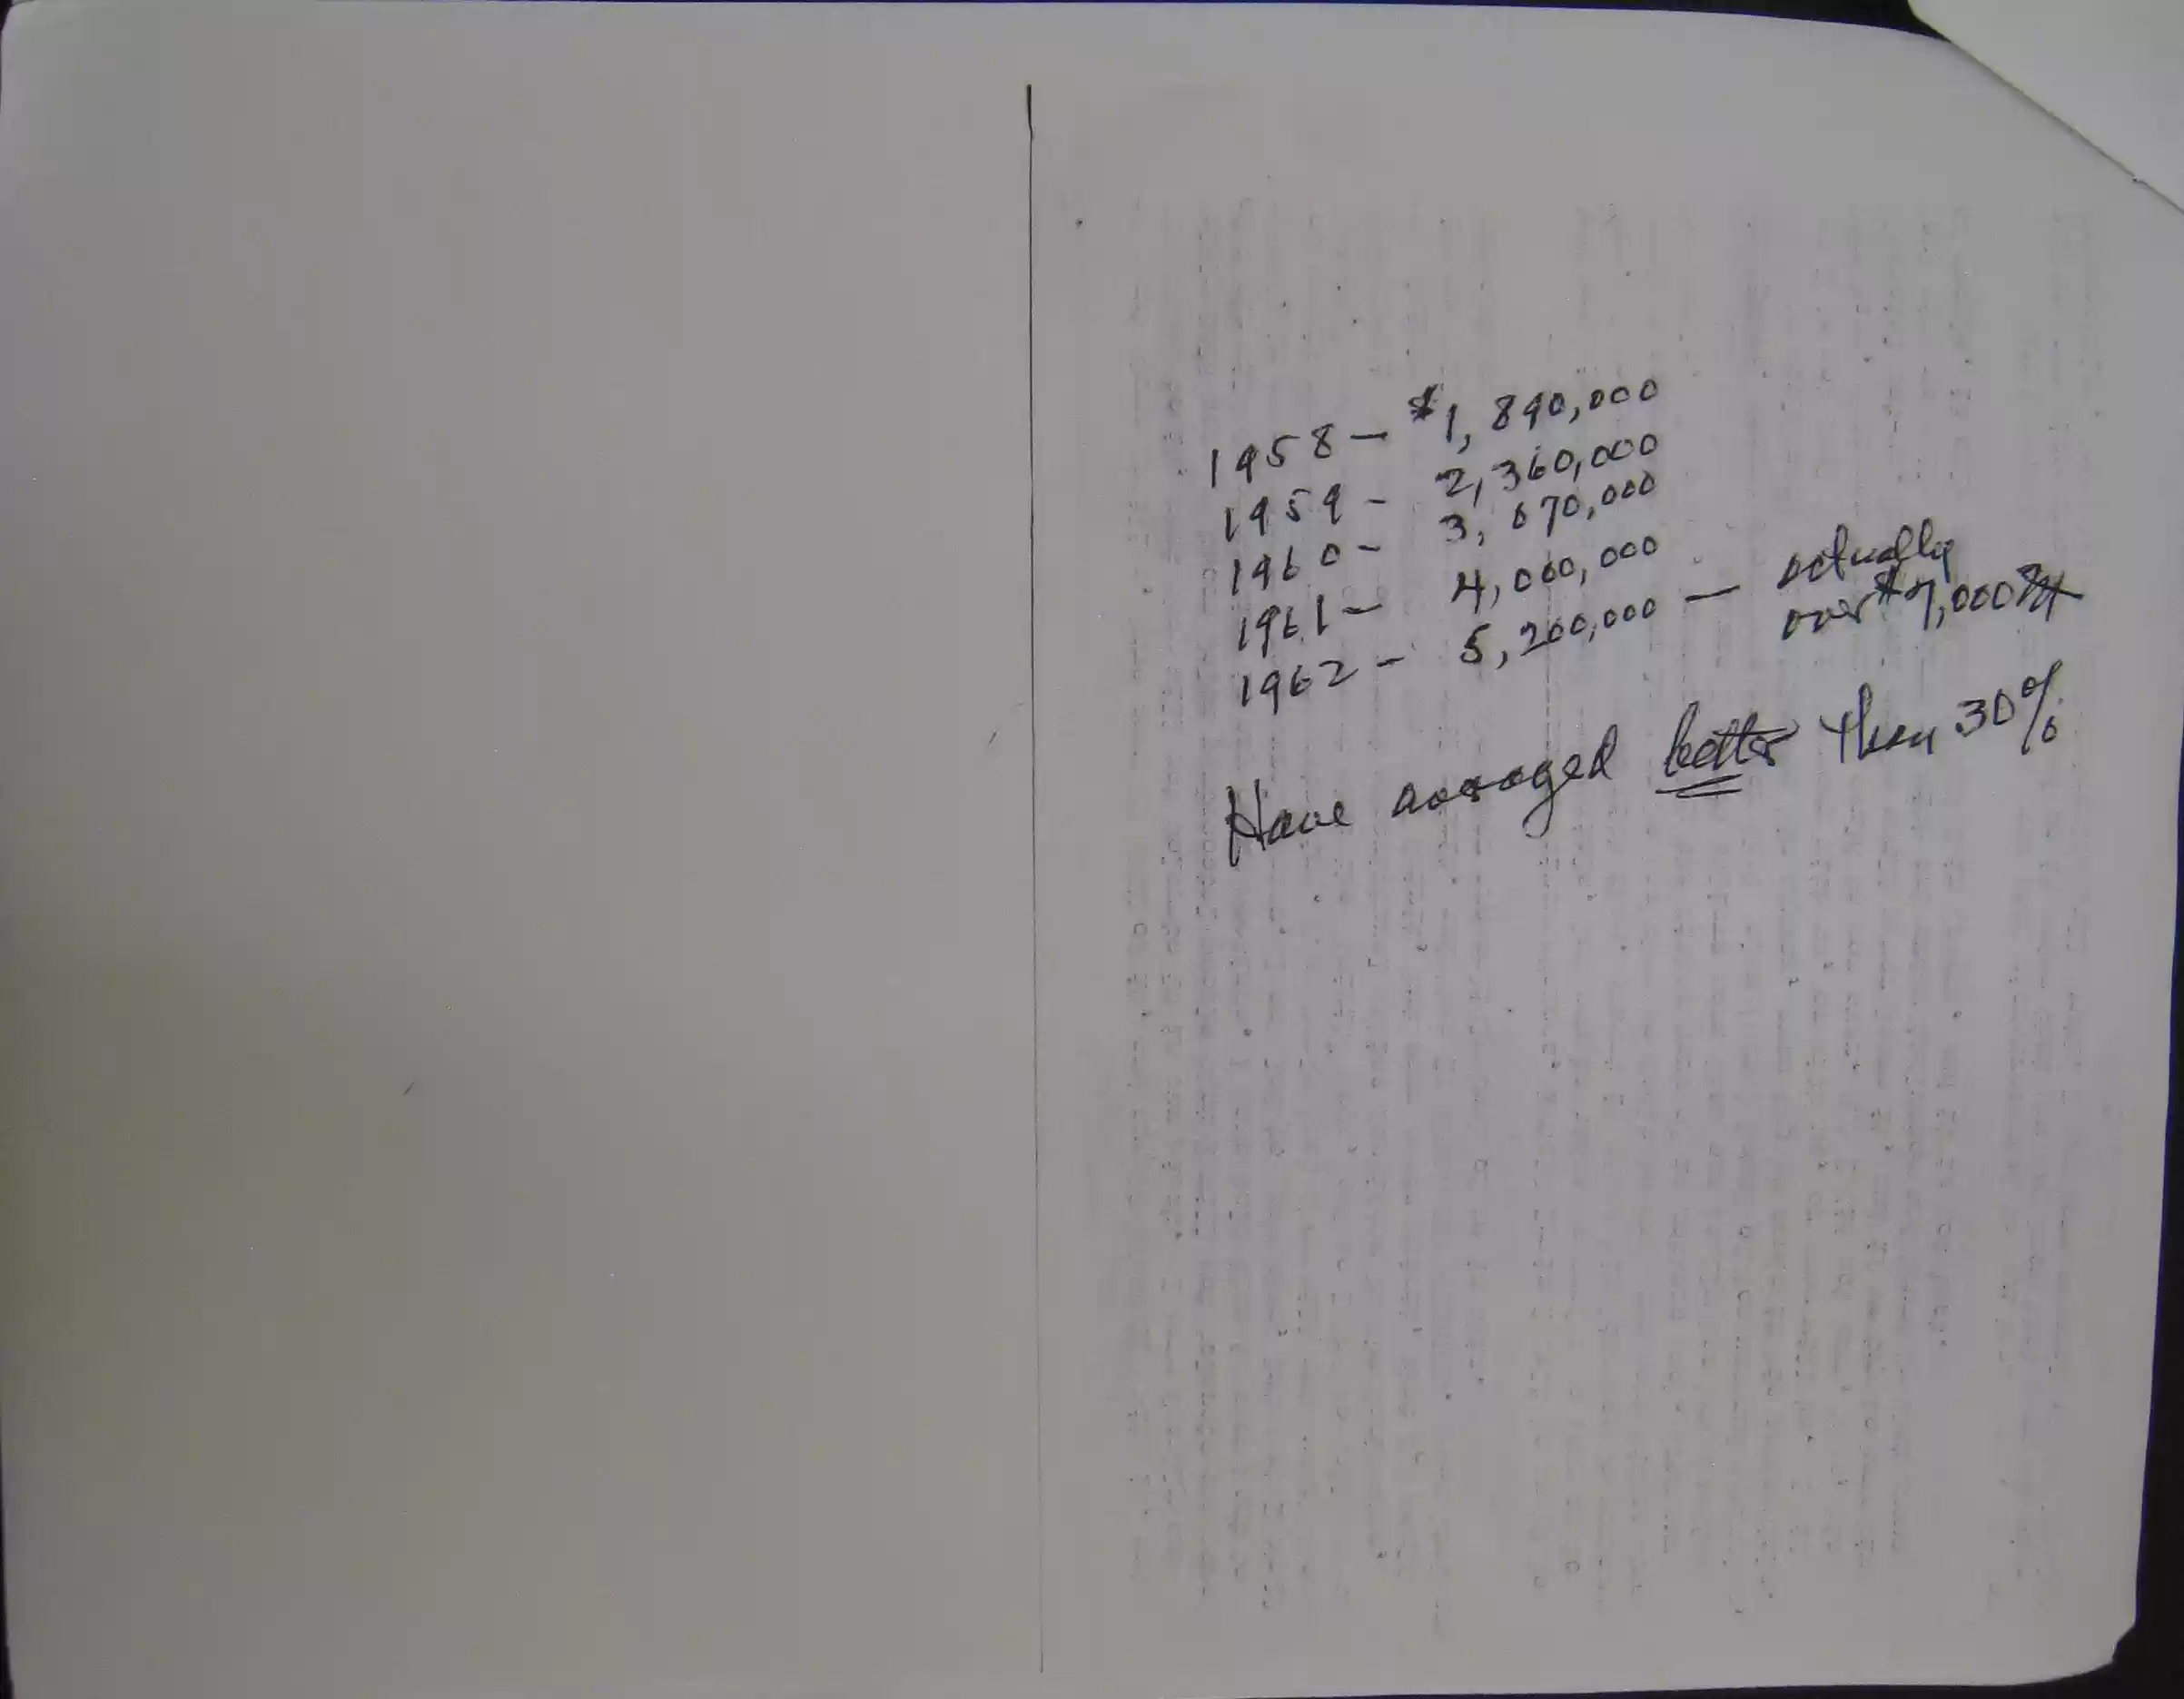 1958 — $1,890,000
1959 - 2,360,000
1960 - 3,670,000
1961 - 4,060,000
1962 - 5,200,000 — actually
over $7,000
Have averaged better than 30%